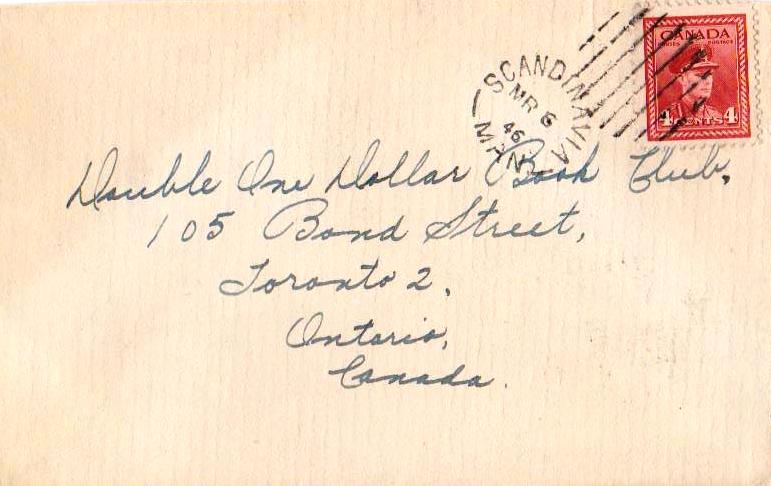 CANADA
POSTES POSTAGE
4 CENTS 4
SCANDINAVIA
MR 6
46
MAN.
Double One Dollar Book Club,
105 Bond Street,
Toronto 2,
Ontario,
Canada.